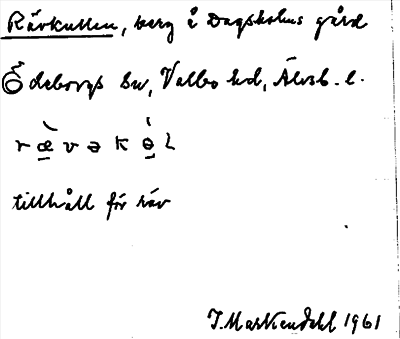 Rävkullen, berg å Dagsholms gård
Ödeborgs sn, Valbo hd, Älvsb. l.
r æ̀ v ə k ɵ́ L
tillhåll för räv
I. Markendahl 1961